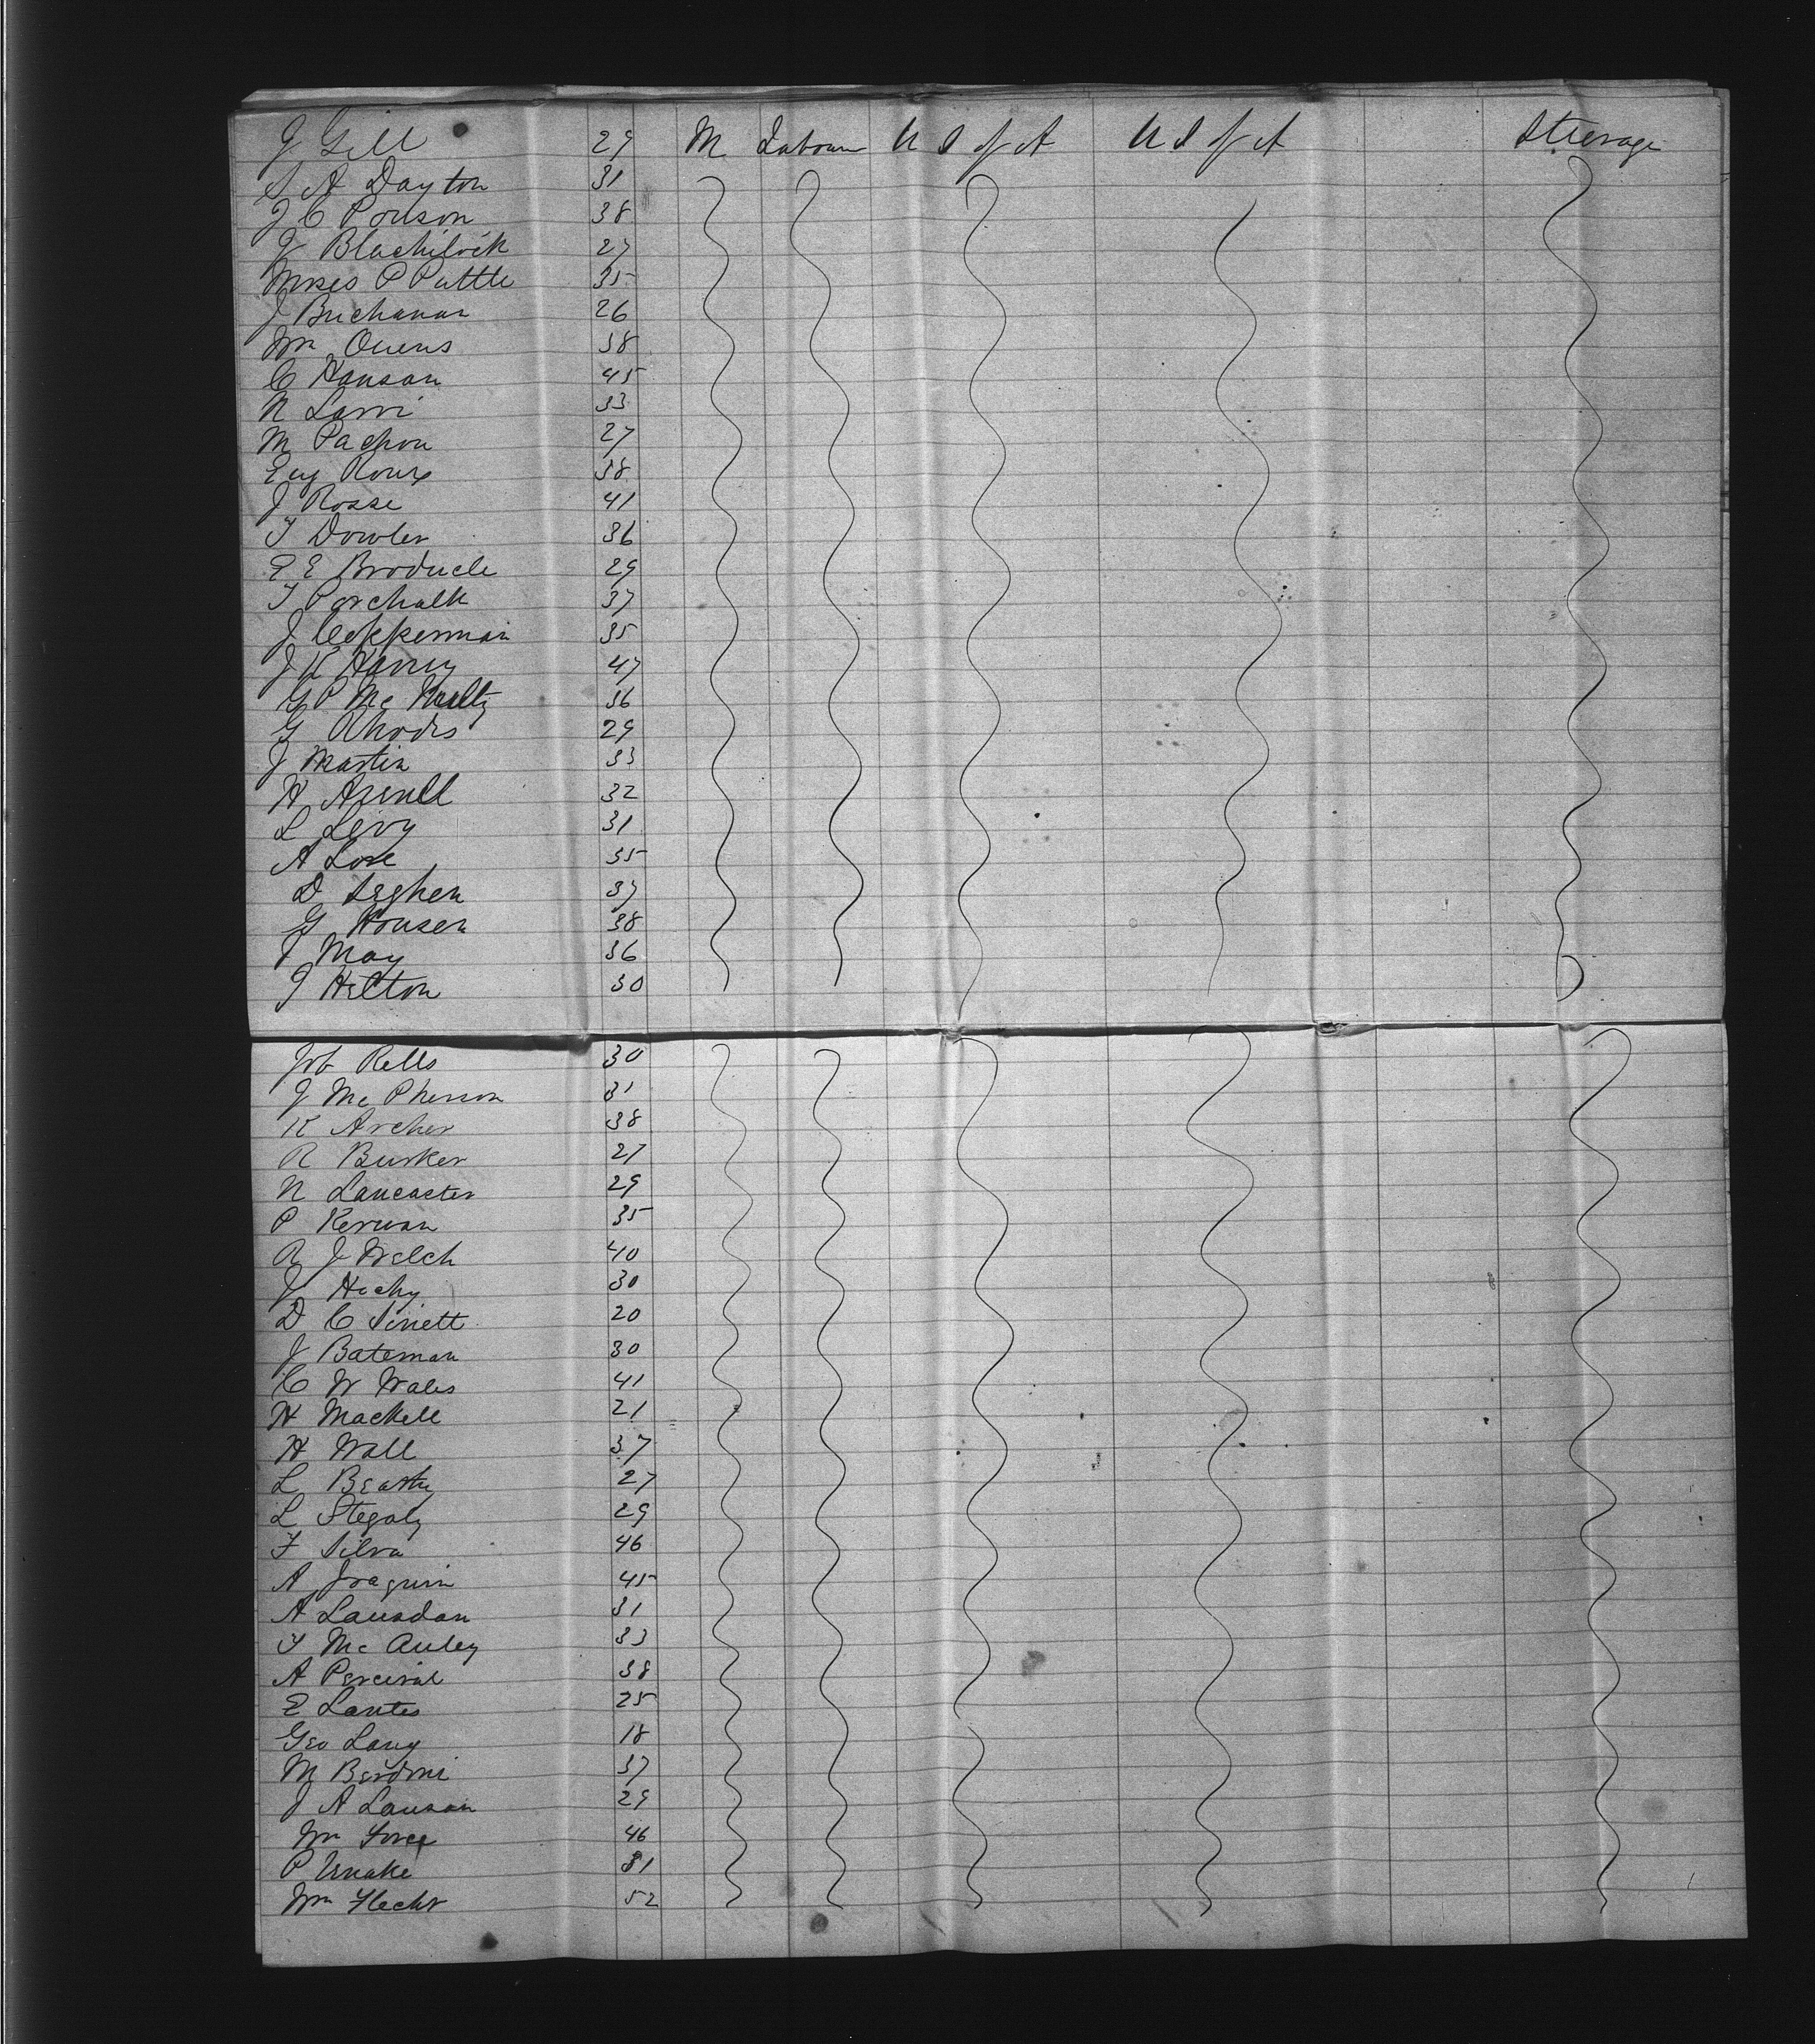 J Gill 29 M Labour U S of A U S of A Steerage
S A Dayton 31
J C Ponson 38
J 27
Moses P Puttle 35
J Buchanan 26
Wm Owens 38
C Hanson 45
N Larvi 33
M Pachon 27
Eug Roux 38
J Rosse 41
T Dowler 36
E E Broducle 29
T Porchalk 37
J 35
J K Harvey 47
G P Mc Nulty 36
G Rhodes 29
J Martin 33
H 32
L Levy 31
A Love 35
D Seghen 37
G Housen 38
J May 36
J Hilton 30
Job Rells 30
J Mc Pherson 31
K Archer 38
R Burker 27
N Lancaster 29
P Kerwan 35
R J Welch 40
J Hichy 30
D C Sinett 20
J Bateman 30
C W Wales 41
H Mackell 21
H Wall 37
L Beatty 27
L Stegaly 29
F Silva 46
A Joaquin 45
A Lausdan 31
T Mc Auley 33
A Percival 38
E Lantes 25
Geo Lang 18
M Berdoni 37
J A Lauson 29
Wm Force 46
P 31
Wm Flecher 52